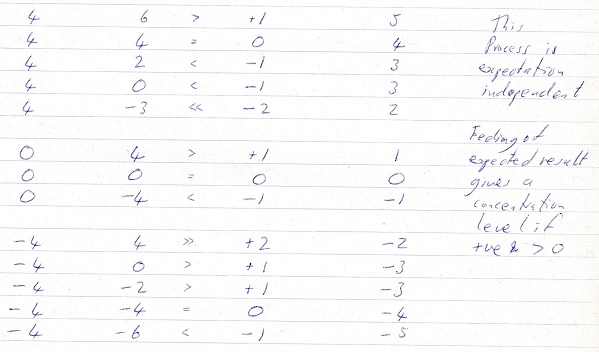 4 6 > +1 5
4 4 = 0 4
4 2 < -1 3
4 0 < -1 3
4 -3 << -2 2
0 4 > +1 1
0 0 = 0 0
0 -4 < -1 -1
-4 4 >> +2 -2
-4 0 > +1 -3
-4 -2 > +1 -3
-4 -4 = 0 -4
-4 -6 < -1 -5
This
Process is
expectation
independent
Feeling of
expected result
gives a
concentration
level if
+ve > 0